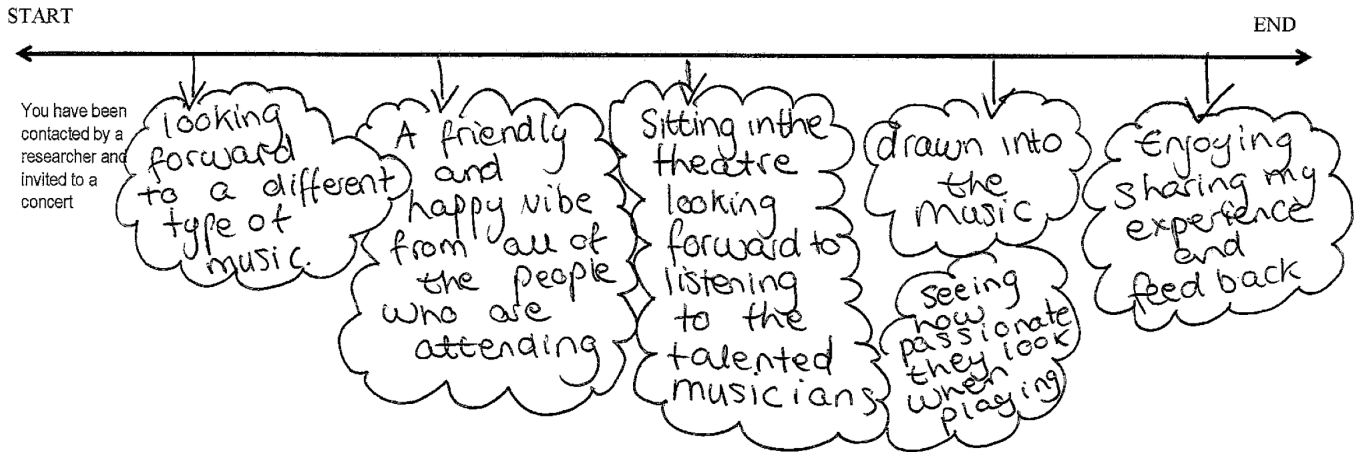 START
END
You have been
contacted by a
researcher and
invited to a
concert
looking
forward
to a different
type of
music.
A friendly
and
happy vibe
from all of
the people
who are
attending
Sitting in the
theatre
looking
forward to
listening
to the
talented
musicians
drawn into
the
music
seeing
how
passionate
they look
when
playing
Enjoying
sharing my
experience
and
feed back